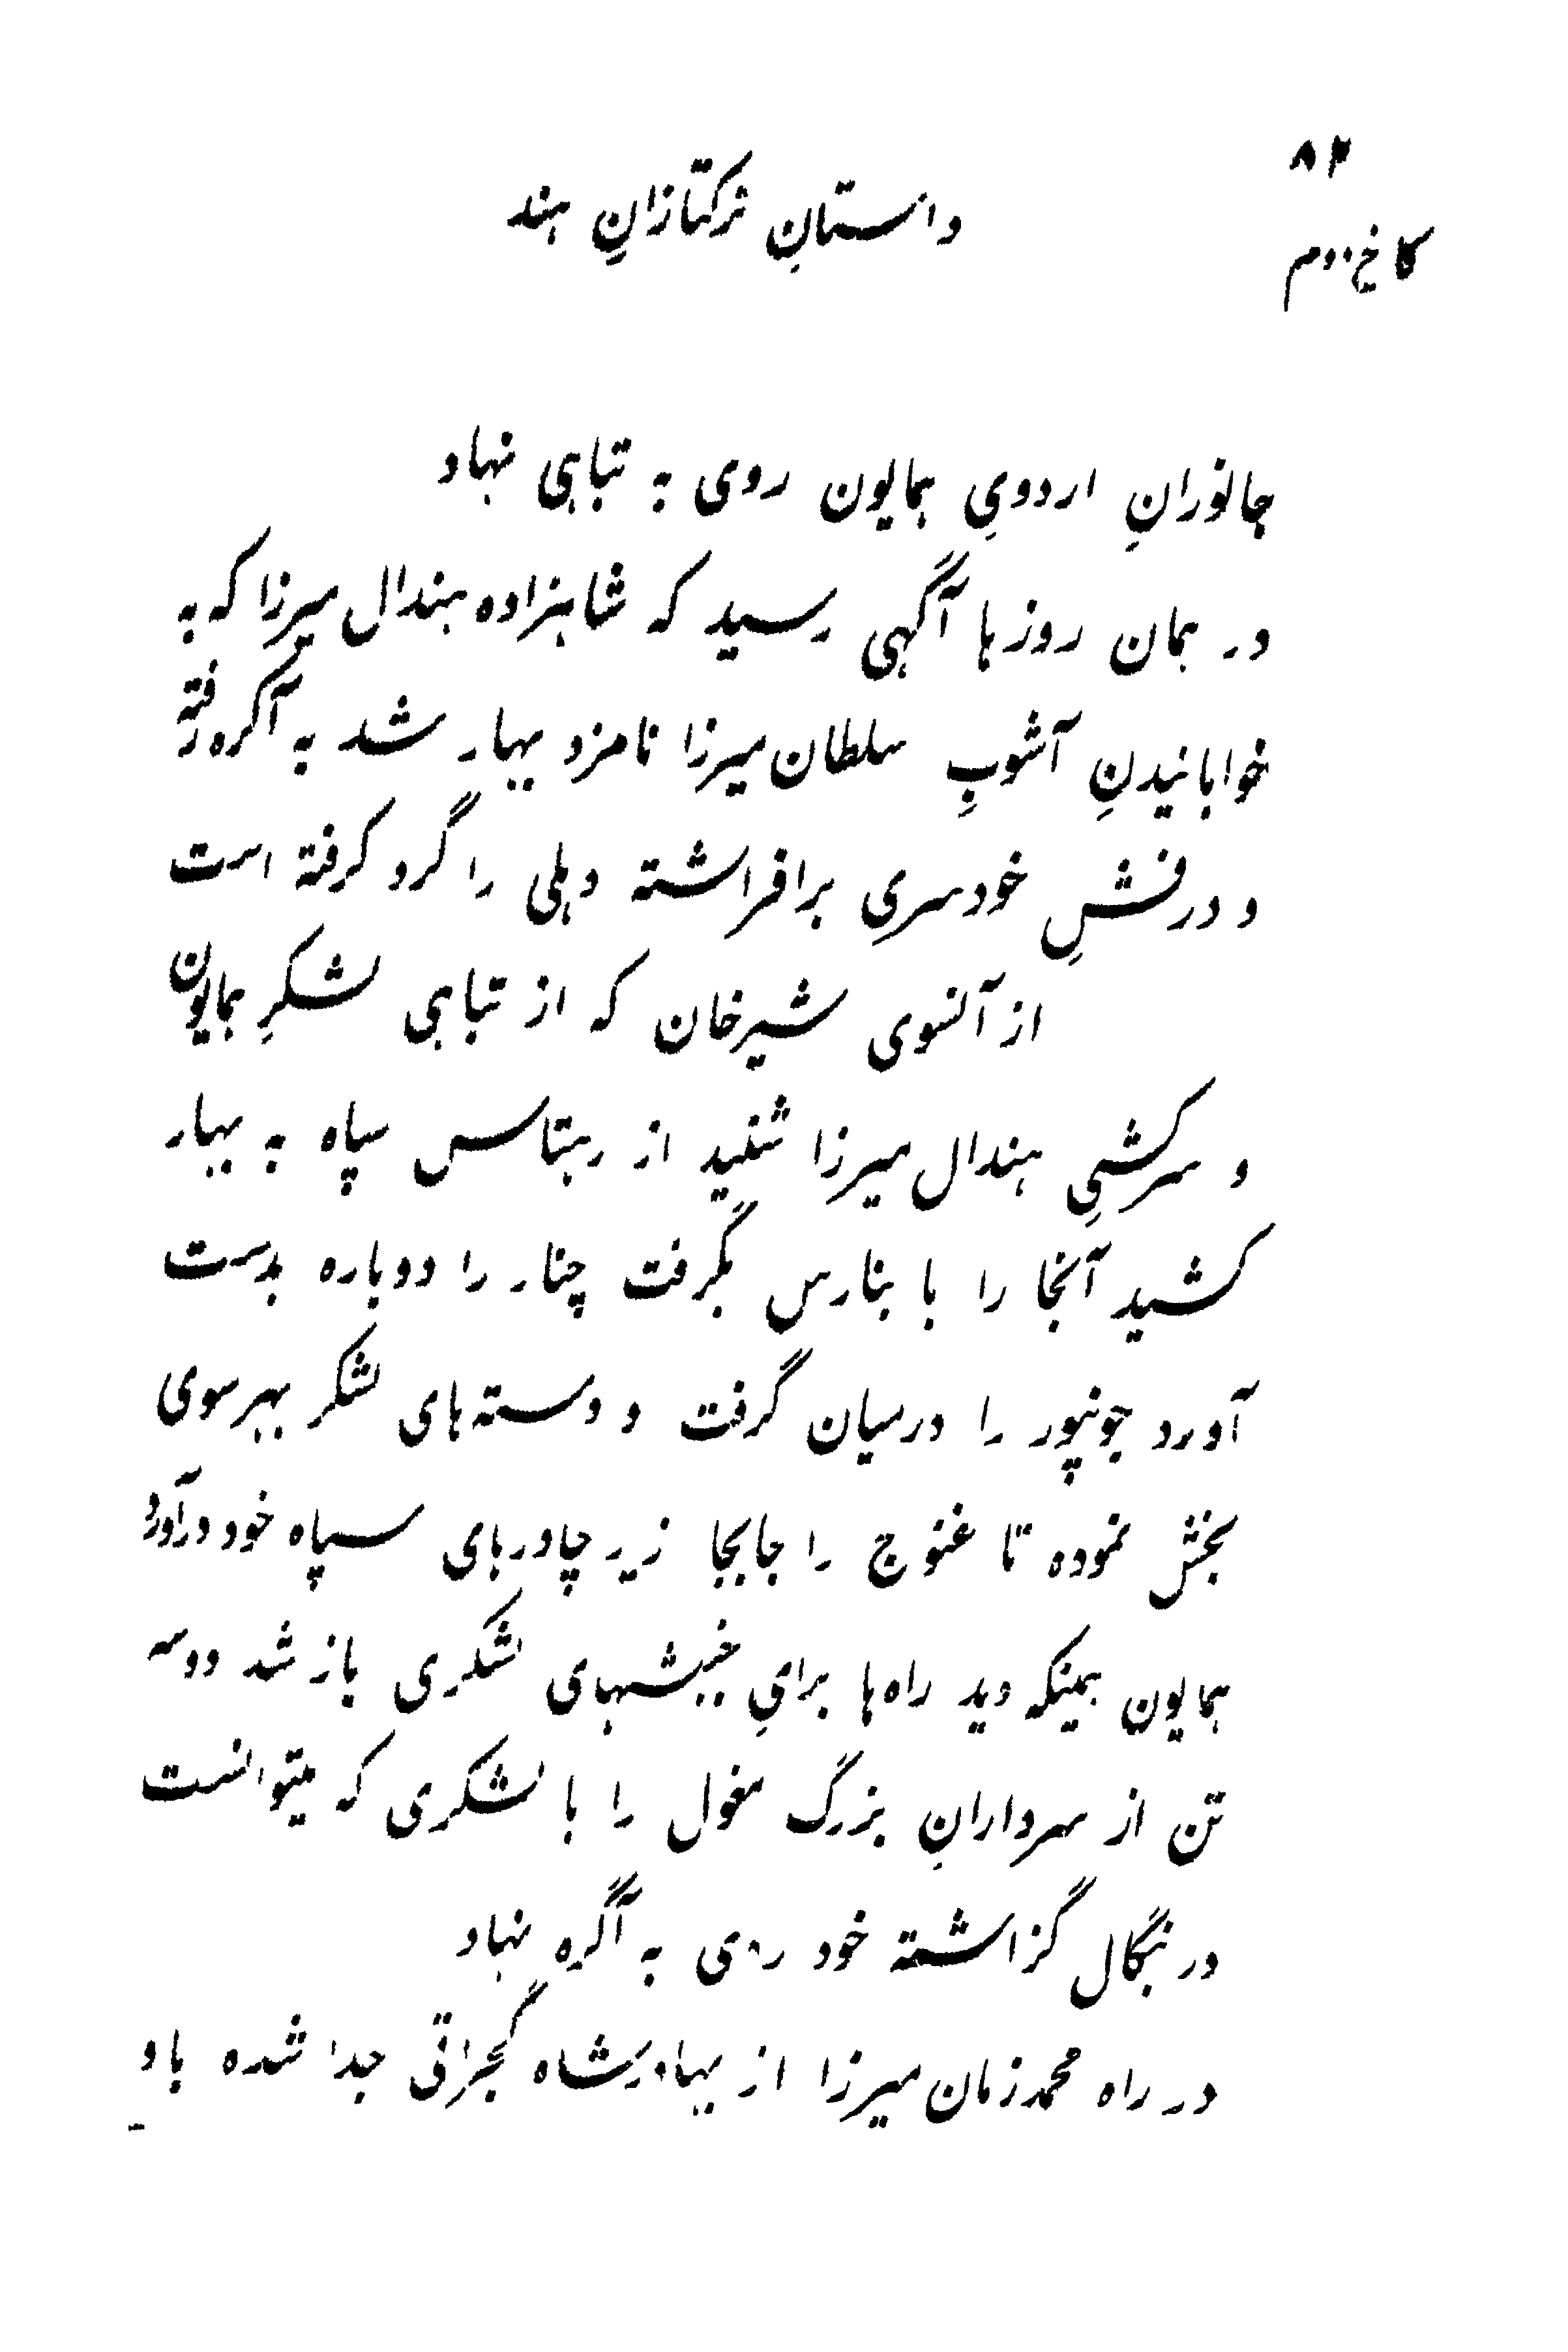 ۸۲
داستانِ ترکتازانِ هند
کاخ دوم
جانورانِ اردویِ همایون روی به تباهی نهاد
در همان روزها آگهی رسید که شاهزاده هندال میرزا که به
خوابانیدنِ آشوبِ سلطان میرزا نامزد بهار شد به آگره رفته
و درفشِ خودسریِ برافراشته دهلی را گرد گرفته است
از آنسوی شیرخان که از تباهی لشکرِ همایون
و سرکشیِ هندال میرزا شنید از رهتاس سپاه به بهار
کشید آنجا را با بنارس بگرفت چنار را دوباره بدست
آورد جونپور را درمیان گرفت و دسته‌های لشکر بهرسوی
بخش نموده تا غنوج را جابجا زیر چادرهای سپاه خود درآورد
همایون همینکه دید راه‌ها برایِ جنبشهای لشکری باز شد دو سه
تن از سردارانِ بزرگ مغول را با لشکری که میتوانست
در بنگال گزاشته خود روی به آگره نهاد
در راه محمد زمان میرزا از بهادرشاه گجراتی جدا شده باو